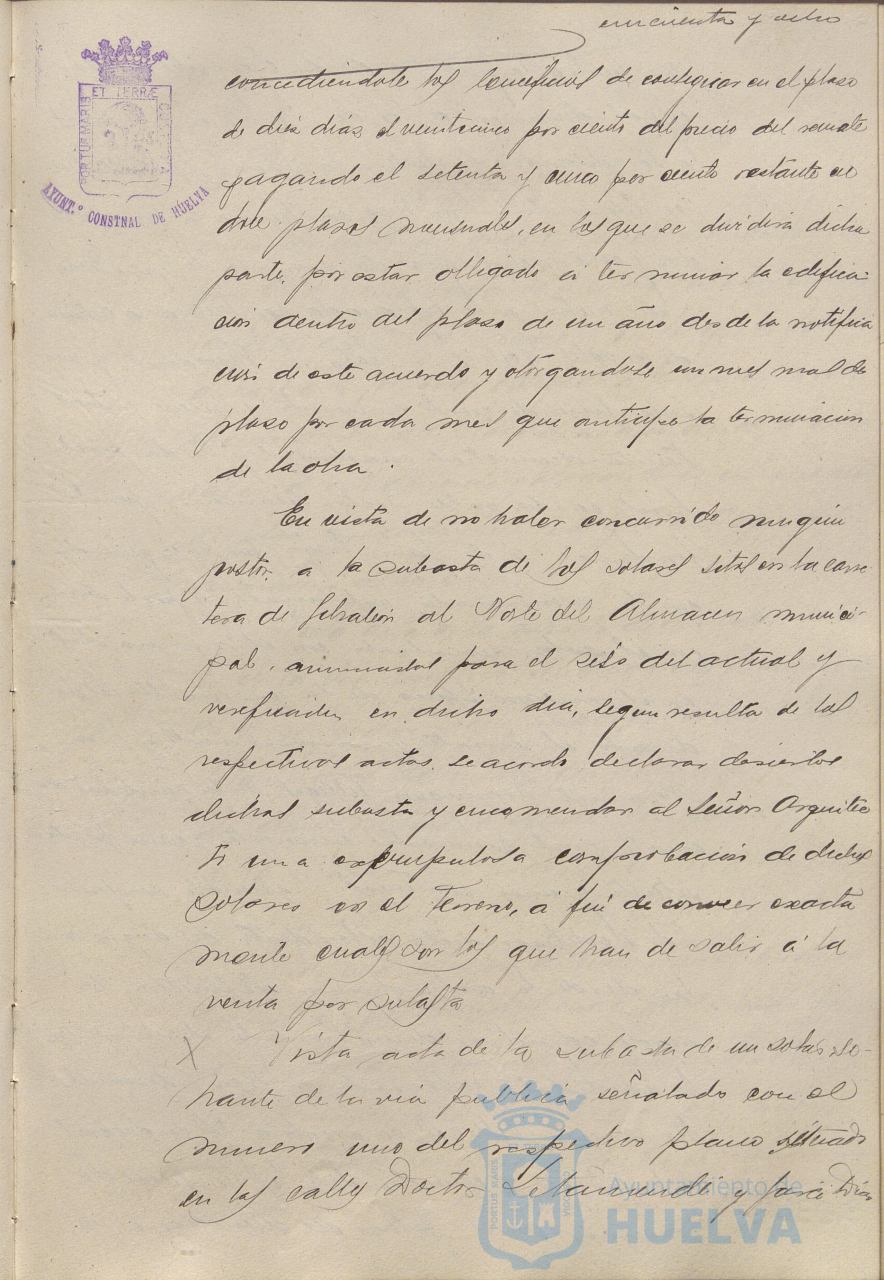 cincuenta y ocho
ET TERRÆ
PORTUS MARIS
CUSTODIA
AYUNT.º CONSTNAL DE HUELVA
concediendole los beneficios de consignar en el plaso
de diez dias el veinticinco por ciento del precio del remate
pagando el setenta y cinco por ciento restante en
doce plasos mensuales, en los que se dividirá dicha
parte, por estar obligado á terminar la edifica-
cion dentro del plaso de un año desde la notifica
cion de este acuerdo y otorgandose un mes mas de
plaso por cada mes que anticipe la terminacion
de la obra.
En vista de no haber concurrido ningun
postor á la subasta de los solares sitos en la carre
tera de Gibraleon al Norte del Almacen munici-
pal, anunciadas para el seis del actual y
verificadas en dicho dia, segun resulta de las
respectivas actas, se acordo declarar desiertas
dichas subasta y encomendar al Señor Arquitec
to una escrupulosa comprobacion de dichos
solares en el terreno, á fin de conocer exacta
mente cuales son los que han de salir á la
venta por subasta
X Vista acta de la subasta de un solar so-
brante de la via publica señalado con el
numero uno del respectivo plano situado
en las calles Doctor y Dias
PORTUS MARIS
Ayuntamiento de
HUELVA